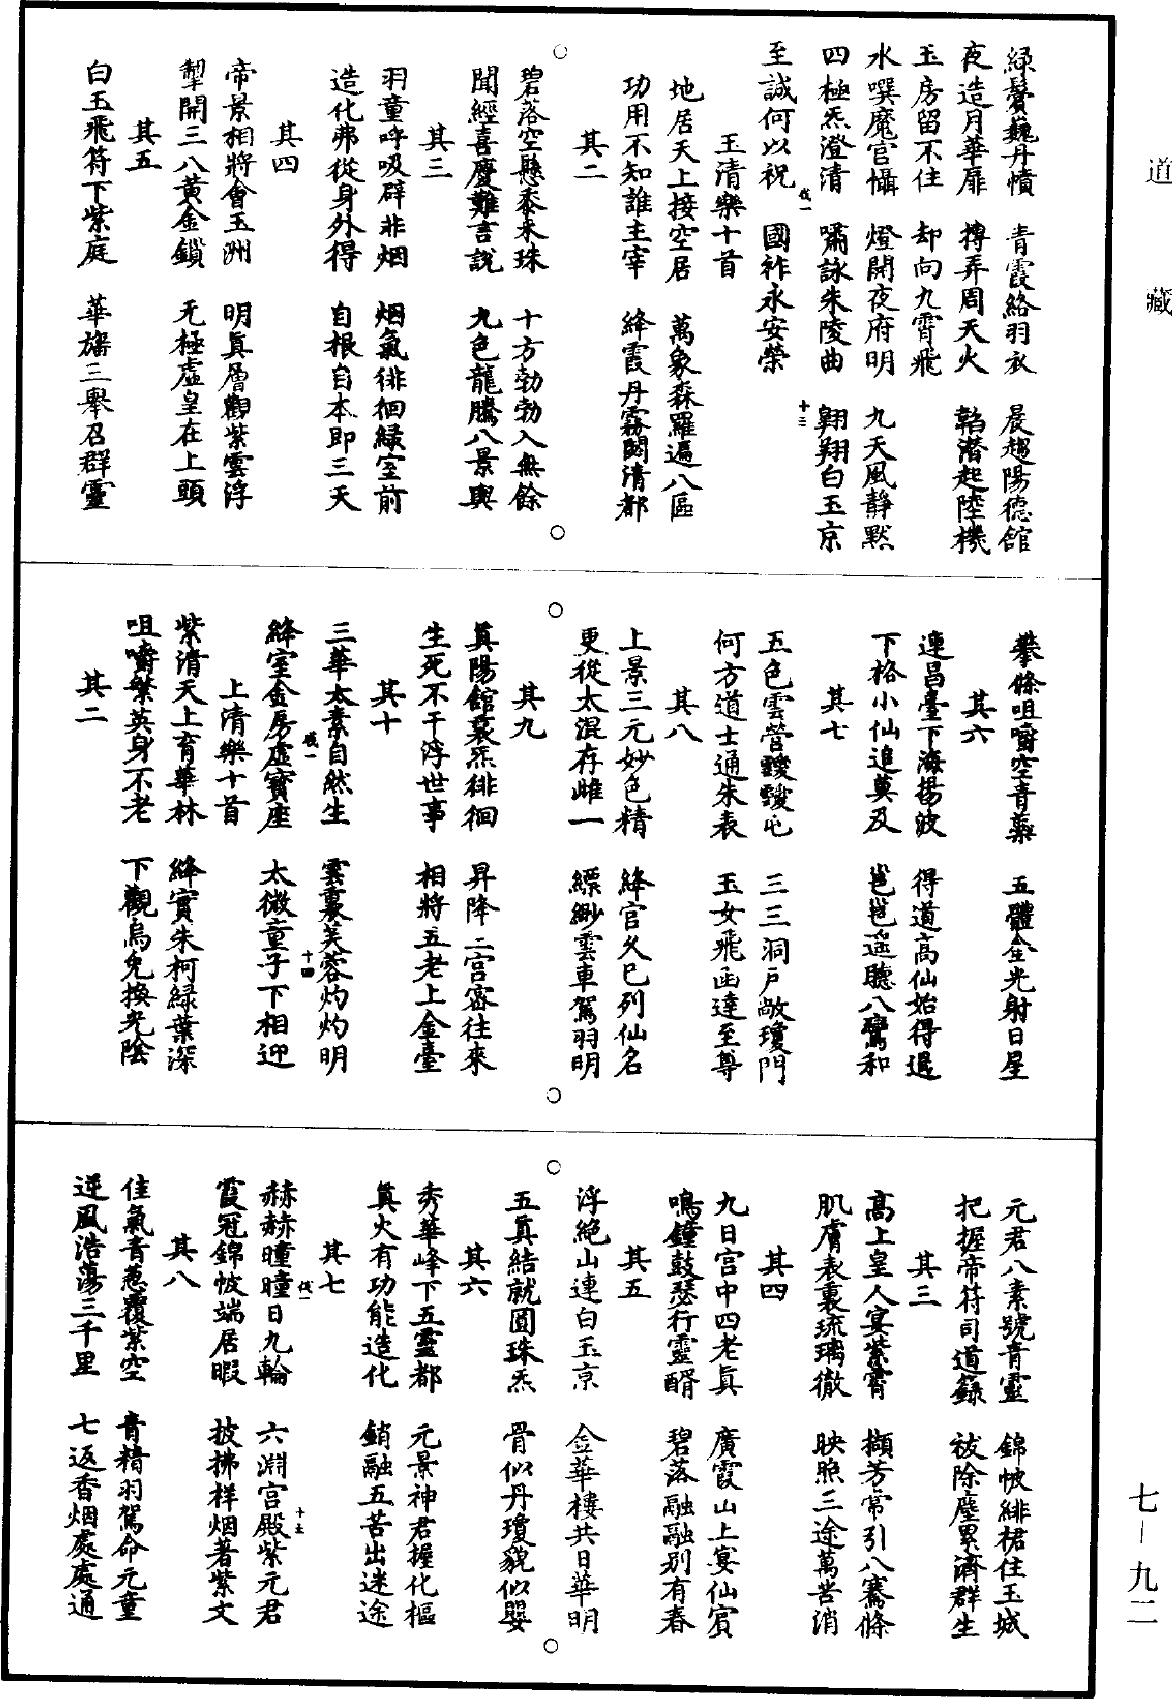 道藏
綠鬢巍丹幘　青霞絡羽衣　晨趨陽德館
夜造月華扉　摶弄周天火　韜潛起陸機
玉房留不住　却向九霄飛
水噀魔官懾　燈開夜府明　九天風靜默
四極炁澄清　嘯詠朱陵曲　翱翔白玉京
至誠何以祝　國祚永安榮
玉清樂十首
地居天上接空居　萬象森羅遍八區
功用不知誰主宰　絳霞丹霧閟清都
其二
碧落空懸黍米珠　十方勃勃入無餘
聞經喜慶難言說　九色龍騰八景輿
其三
羽童呼吸辟非烟　烟氣徘徊綠室前
造化弗從身外得　自根自本即三天
其四
帝景相將會玉洲　明眞層觀紫雲浮
掣開三八黃金鎖　无極虛皇在上頭
其五
白玉飛符下紫庭　華旛三舉召群靈
攀條咀嚼空青蘂　五體金光射日星
其六
連昌臺下海揚波　得道高仙始得過
下格小仙追莫及　邕邕遥聽八鸞和
其七
五色雲營靉靆屯　三三洞戶敞瓊門
何方道士通朱表　玉女飛函達至尊
其八
上景三元妙色精　絳官久已列仙名
更從太混存雌一　縹緲雲車駕羽明
其九
眞陽館裏炁徘徊　昇降二宮密往來
生死不干浮世事　相將五老上金臺
其十
三華太素自然生　雲裏芙蓉灼灼明
絳室金房虛寶座　太微童子下相迎
上清樂十首
紫清天上育華林　絳實朱柯綠葉深
咀嚼繁英身不老　下觀烏兔換光陰
其二
元君八素號青靈　錦帔緋裙住玉城
把握帝符司道籙　袚除塵累濟群生
其三
高上皇人宴紫霄　擷芳常引八騫條
肌膚表裏琉璃徹　映照三途萬苦消
其四
九日宮中四老眞　廣霞山上宴仙賓
鳴鐘鼓瑟行靈醑　碧落融融别有春
其五
浮絕山連白玉京　金華樓共日華明
五眞結就圓珠炁　骨似丹瓊貌似嬰
其六
秀華峰下五靈都　元景神君握化樞
眞火有功能造化　銷融五苦出迷途
其七
赫赫曈曈日九輪　六淵宮殿紫元君
霞冠錦帔端居暇　披拂祥烟著紫文
其八
佳氣青葱覆紫空　青精羽駕命元童
逆風浩蕩三千里　七返香烟處處通
七－九二